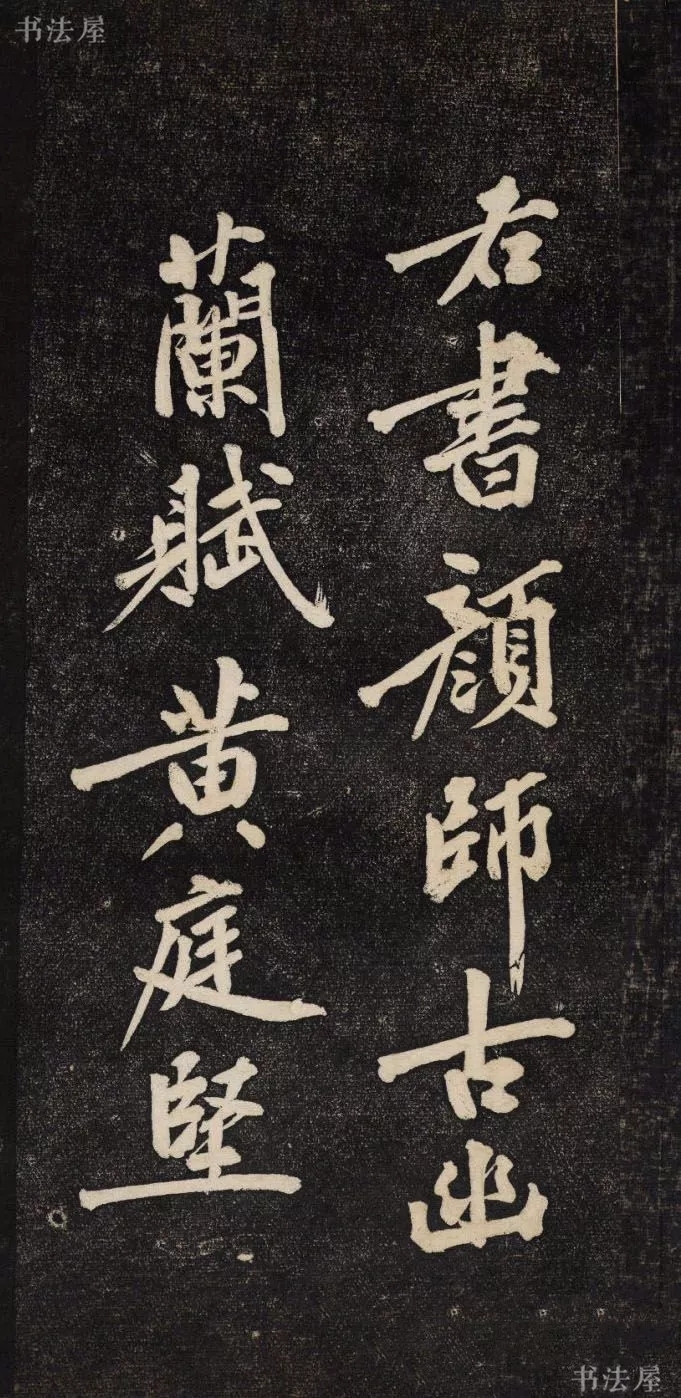 书法屋
右書顏師古幽
蘭賦黃庭堅
书法屋